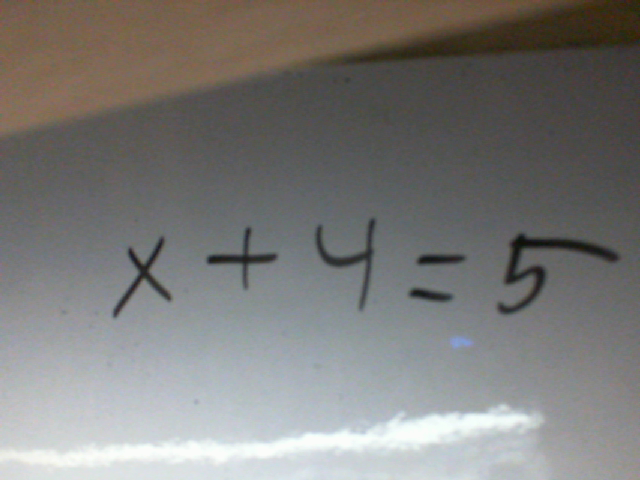 x + 4 = 5